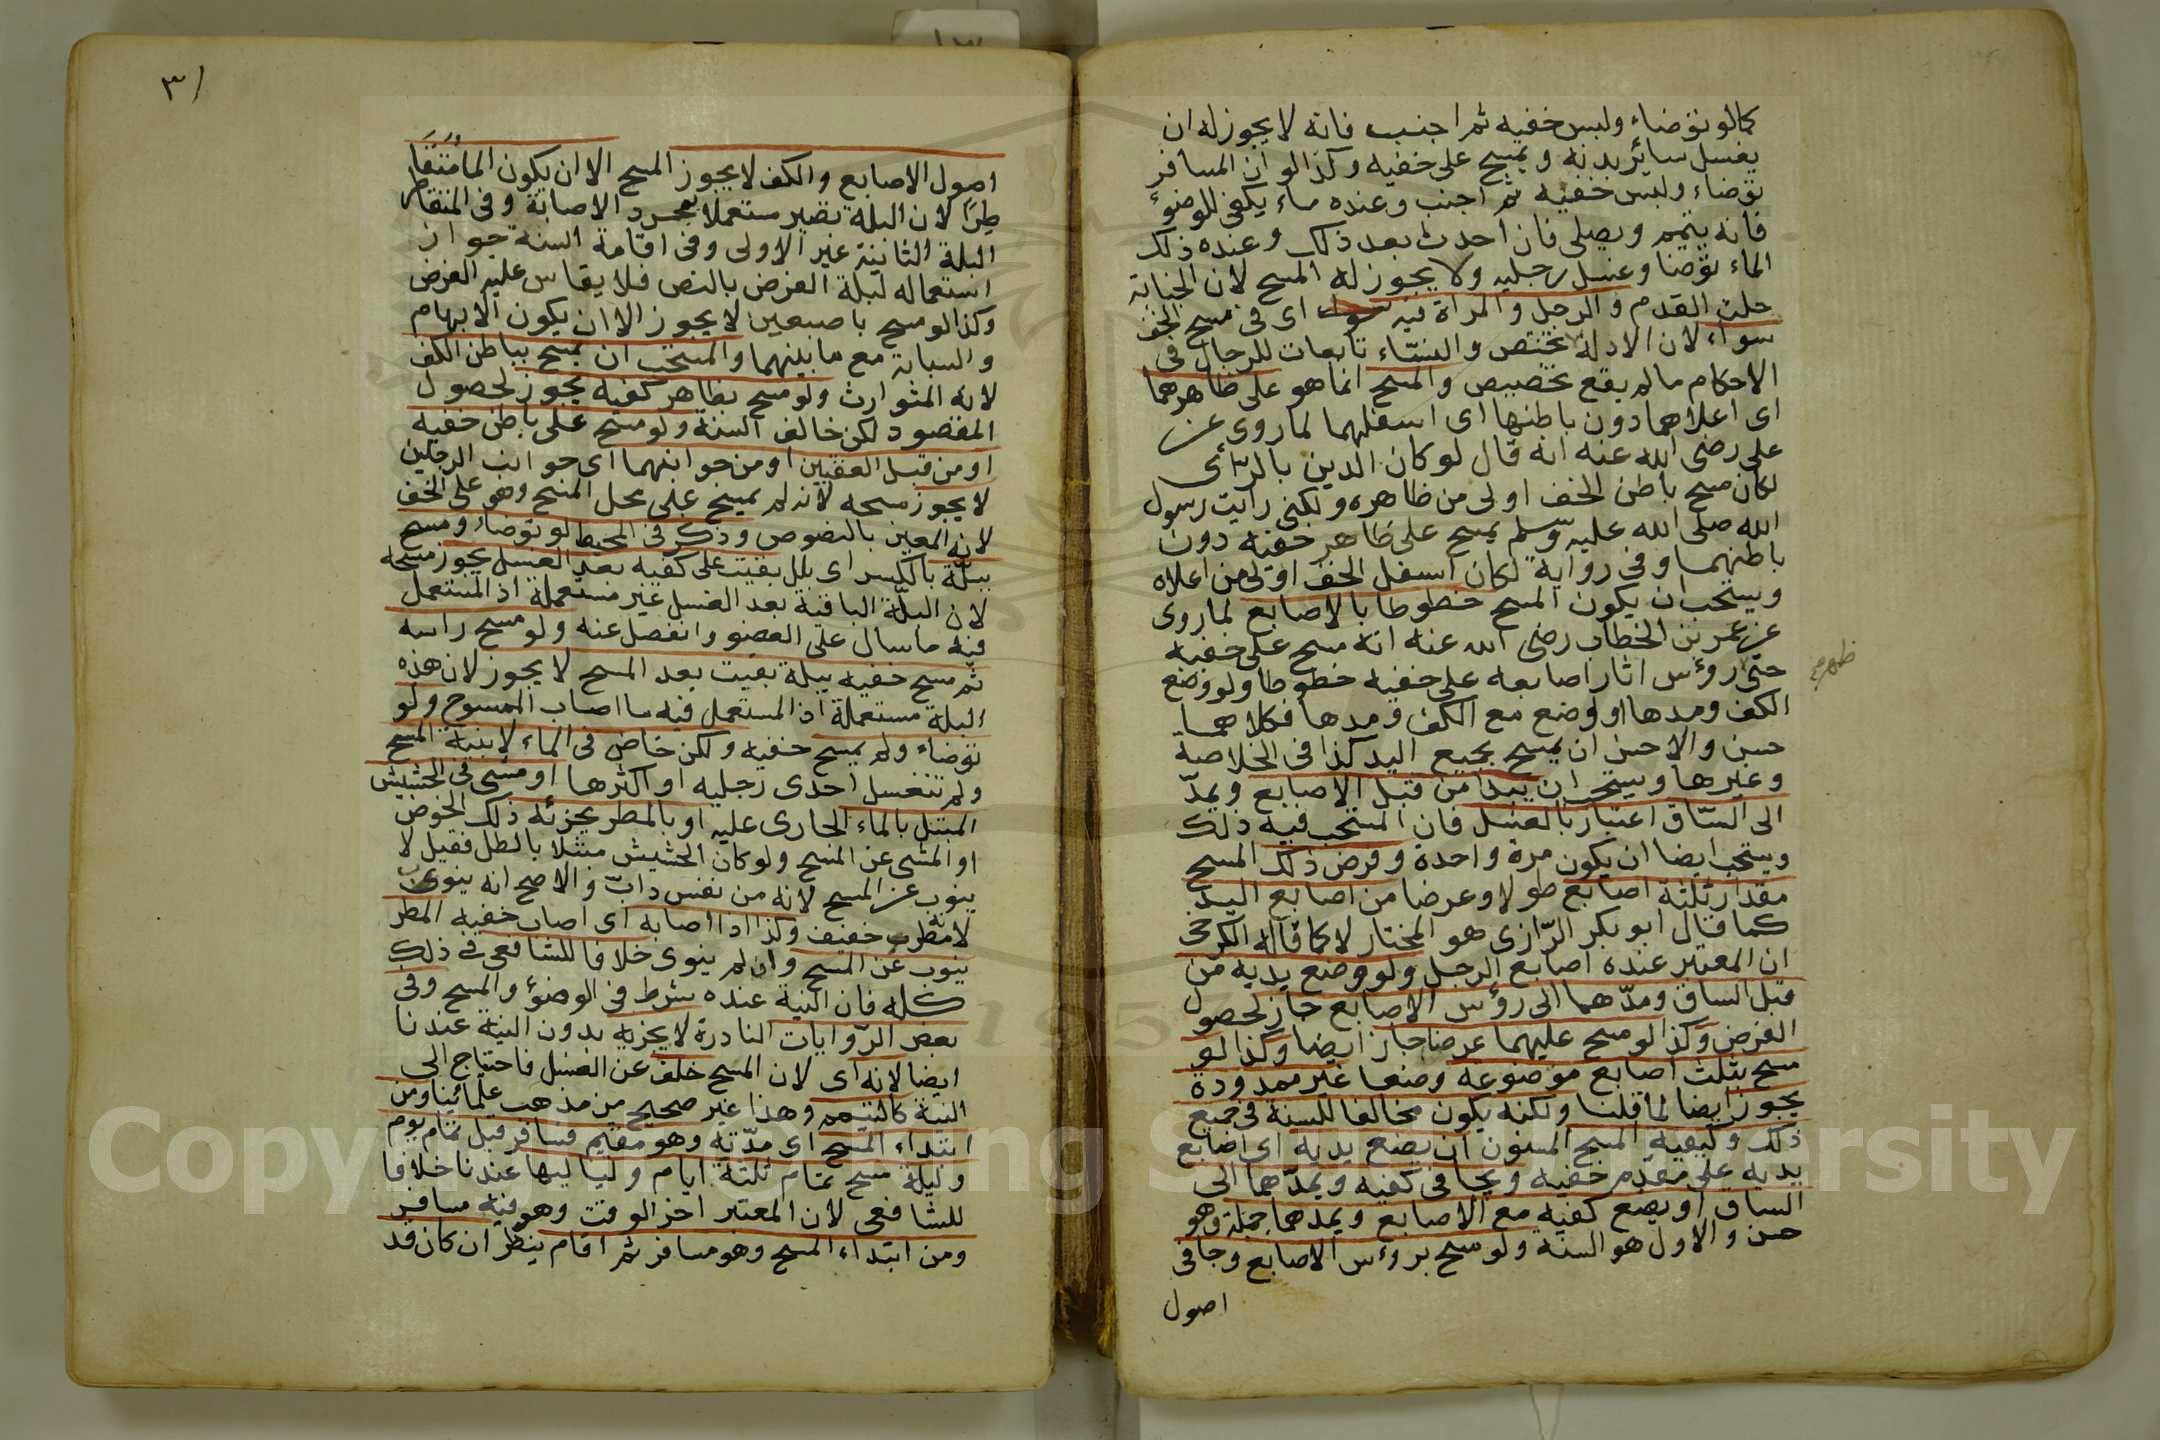 كالو توضاء ولبس خفيه ثم اجنب فانه لا يجوز له ان
يغسل سائر بدنه ويمسح على خفيه وكذا لو ان المسافر
توضاء ولبس خفيه ثم اجنب وعنده ماء يكفى للوضوء
فانه يتيمم ويصلى فان احدث بعد ذلك وعنده ذلك
الماء توضا وغسل رجليه ولا يجوز له المسح لان الجنابة
حلت القدم والرجل والمراة فيه سواء اى فى مسح الخف
سواء لان الادلة تختص والنساء تابعات للرجال فى
الاحكام ما لم يقع تخصيص والمسح انما هو على ظاهرهما
اى اعلاهما دون باطنها اى اسفلهما لما روى عن
على رضى الله عنه انه قال لو كان الدين بالرأى
لكان مسح باطن الخف اولى من ظاهره ولكنى رايت رسول
الله صلى الله عليه وسلم يمسح على ظاهر خفيه دون
باطنهما وفى رواية لكان اسفل الخف اولى من اعلاه
ويستحب ان يكون المسح خطوطا بالاصابع لما روى
عن عمر بن الخطاب رضى الله عنه انه مسح على خفيه
حتى روٴس اثار اصابعه على خفيه خطوطا ولو وضع
ظهر صح
الكف ومدها او وضع مع الكف ومدها فكلاهما
حسن والاحسن ان يمسح بجميع اليد كذا فى الخلاصة
وغيرها ويستحب ان يبدا من قبل الاصابع ويمدّ
الى السّاق اعتبار بالغسل فان المستحب فيه ذلك
ويستحب ايضا ان يكون مرة واحدة وفرض ذلك المسح
مقدار ثلثة اصابع طولا وعرضا من اصابع اليد
كما قال ابو بكر الرّازى هو المختار لا كما قاله الكرخى
ان المعتبر عنده اصابع الرجل ولو وضع يديه من
قبل الساق ومدّهما الى روٴس الاصابع جاز لحصول
الفرض وكذا لو مسح عليهما عرضا جاز ايضا وكذا لو
مسح بثلث اصابع موضوعة وضعا غير ممدودة
يجوز ايضا لما قلنا ولكنه يكون مخالفا للسنة فى جميع
ذلك وكيفية المسح المسنون ان يضع يديه اى اصابع
يديه على مقدّم خفيه ويجافى كفيه ويمدّهما الى
الساق او يضع كفيه مع الاصابع ويمدهما جملة وهو
حسن والاول هو السنة ولو مسح بروٴس الاصابع وجافى
اصول
٣١
اصول الاصابع والكف لا يجوز المسح الا ان يكون الماء متقا
طرًا لان البلة تصير مستعملا بمجرد الاصابة وفى المتقاطر
البلة الثانية غير الاولى وفى اقامة السنة جواز
استعماله لبلة الفرض بالنص فلا يقاس عليه الفرض
وكذا لو مسح باصبعين لا يجوز الا ان يكون الابهام
والسبابة مع ما بينهما والمستحب ان يمسح بباطن الكف
لانه المتوارث ولو مسح بظاهر كفيه يجوز لحصول
المقصود لكن خالف السنة ولو مسح على باطن خفيه
او من قبل العقبين او من جوانبهما اى جوانب الرجلين
لا يجوز مسحه لانه لم يمسح على محل المسح وهو على الخف
لانه المعين بالنصوص وذكر فى المحيط لو توضاء ومسح
ببلّة بالكسر اى بلل بقيت على كفيه بعد الغسل يجوز مسحه
لان البلّة الباقية بعد الغسل غير مستعملة اذ المستعمل
فيه ما سال على العضو وانفصل عنه ولو مسح راسه
ثم مسح خفيه ببلة بقيت بعد المسح لا يجوز لان هذه
البلة مستعملة اذ المستعمل فيه ما اصاب الممسوح ولو
توضاء ولم يمسح خفيه ولكن خاض فى الماء لا بنية المسح
ولم تنغسل احدى رجليه او اكثرها او مشى فى الحشيش
المبتل بالماء الجارى عليه او بالمطر يجزئه ذلك الخوض
او المشى عن المسح ولو كان الحشيش مبتلا بالطل فقيل لا
ينوب عن المسح لانه من نفس دابّ والاصح انه ينوب
لانه مطر خفيف وكذا اذا اصابه اى اصاب خفيه المطر
ينوب عن المسح وان لم ينوى خلافا للشافعى فى ذلك
كله فان النية عنده شرط فى الوضوٴ والمسح وفى
بعض الرّوايات النادرة لا يجزيه بدون النية عندنا
ايضا لانه اى لان المسح خلف عن الغسل فاحتاج الى
النية كالتيمم وهذا غير صحيح من مذهب علمائينا ومن
ابتداء المسح اى مدّته وهو مقيم فسافر قبل تمام يوم
وليلة مسح تمام ثلثة ايام ولياليها عندنا خلافا
للشافعى لان المعتبر اخر الوقت وهو فيه مسافر
ومن ابتداء المسح وهو مسافر ثم اقام ينظر ان كان قد